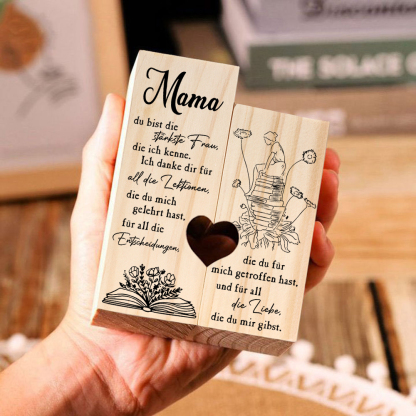 Mama
du bist die
stärkste Frau,
die ich kenne.
Ich danke dir für
all die Lektionen,
die du mich
gelehrt hast,
für all die
Entscheidungen,
die du für
mich getroffen hast,
und für all
die Liebe,
die du mir gibst.
THE SOLACE O